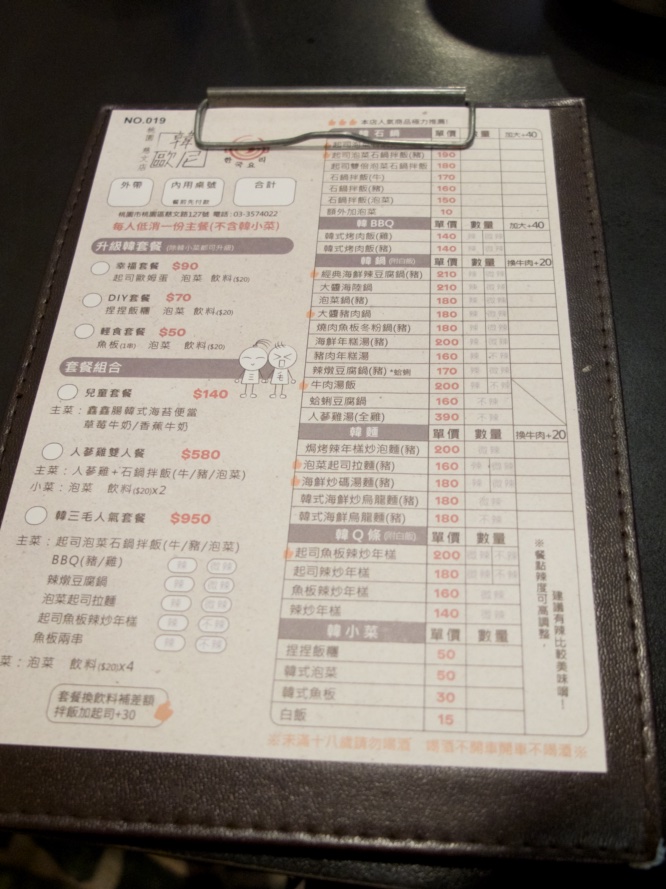 NO.019
桃園 慈文店
韓歐尼
한국요리
外帶 內用桌號 合計
餐前先付款
桃園市桃園區慈文路127號 電話：03-3574022
每人低消一份主餐(不含韓小菜)
升級韓套餐
幸福套餐 $90
起司歐姆蛋 泡菜 飲料($20)
DIY套餐 $70
捏捏飯糰 泡菜 飲料($20)
輕食套餐 $50
魚板(1串) 泡菜 飲料($20)
套餐組合
兒童套餐 $140
主菜：鑫鑫腸韓式海苔便當
草莓牛奶/香蕉牛奶
人蔘雞雙人餐 $580
主菜：人蔘雞+石鍋拌飯(牛/豬/泡菜)
小菜：泡菜 飲料($20)X2
韓三毛人氣套餐 $950
主菜：起司泡菜石鍋拌飯(牛/豬/泡菜)
BBQ(豬/雞) 辣 微辣
辣燉豆腐鍋 辣 微辣
泡菜起司拉麵 辣 微辣
起司魚板辣炒年糕 辣 不辣
魚板兩串 辣 不辣
菜：泡菜 飲料($20)X4
套餐換飲料補差額
拌飯加起司+30
三毛
本店人氣商品極力推薦!
韓石鍋 單價 數量 加大+40
起司泡菜石鍋拌飯(豬) 190
起司雙倍泡菜石鍋拌飯 180
石鍋拌飯(牛) 170
石鍋拌飯(豬) 160
石鍋拌飯(泡菜) 150
額外加泡菜 10
韓BBQ 單價 數量 加大+40
韓式烤肉飯(雞) 140 辣 微辣
韓式烤肉飯(豬) 140 辣 微辣
韓鍋(附白飯) 單價 數量 換牛肉+20
經典海鮮辣豆腐鍋(豬) 210 辣 微辣
大醬海陸鍋 210 辣 微辣
泡菜鍋(豬) 180 辣 微辣
大醬豬肉鍋 180 辣 微辣
燒肉魚板冬粉鍋(豬) 180 辣 微辣
海鮮年糕湯(豬) 200 辣 微辣
豬肉年糕湯 160 辣 不辣
辣燉豆腐鍋(豬)*蛤蜊 170 辣 微辣
牛肉湯飯 200 辣 不辣
蛤蜊豆腐鍋 160 不辣
人蔘雞湯(全雞) 390 不辣
韓麵 單價 數量 換牛肉+20
焗烤辣年糕炒泡麵(豬) 200 微辣
泡菜起司拉麵(豬) 160 辣 微辣
海鮮炒碼湯麵(豬) 180 辣 微辣
韓式海鮮炒烏龍麵(豬) 180 微辣
韓式海鮮烏龍麵(豬) 180 不辣
韓Q條(附白飯) 單價 數量
起司魚板辣炒年糕 200 微辣 不辣
起司辣炒年糕 180 微辣 不辣
魚板辣炒年糕 160 微辣
辣炒年糕 140 微辣
韓小菜 單價 數量
捏捏飯糰 50
韓式泡菜 50
韓式魚板 30
白飯 15
※餐點辣度可高調整，
建議有辣比較美味喔！
※未滿十八歲請勿喝酒 喝酒不開車開車不喝酒※